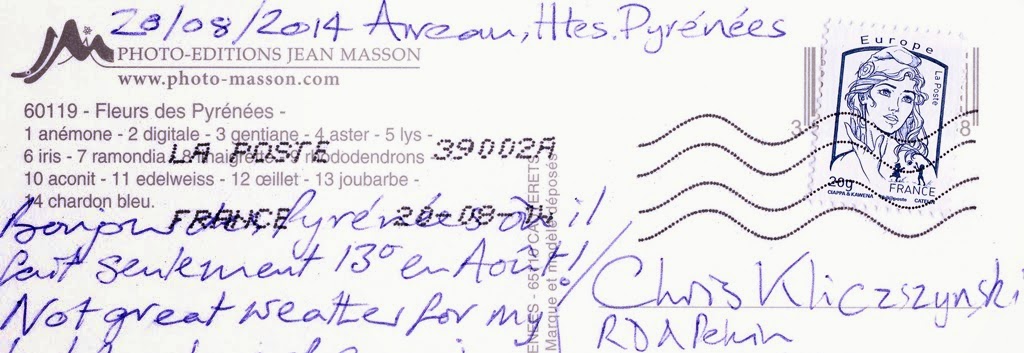 20/08/2014 Arreau, Htes. Pyrénées
PHOTO-EDITIONS JEAN MASSON
www.photo-masson.com
60119 - Fleurs des Pyrénées -
1 anémone - 2 digitale - 3 gentiane - 4 aster - 5 lys -
6 iris - 7 ramondia - 8 haigrette - 9 rhododendrons -
10 aconit - 11 edelweiss - 12 œillet - 13 joubarbe -
14 chardon bleu.
LA POSTE 39002A
FRANCE 20-08-14
Bonjour des Pyrénées où il
fait seulement 13° en Août!!
Not great weather for my
65110 CAUTERETS
Marque et modèle déposés
Europe
La Poste
20g
FRANCE
CIAPPA & KAWENA
3
8
Chris Kliczszynski